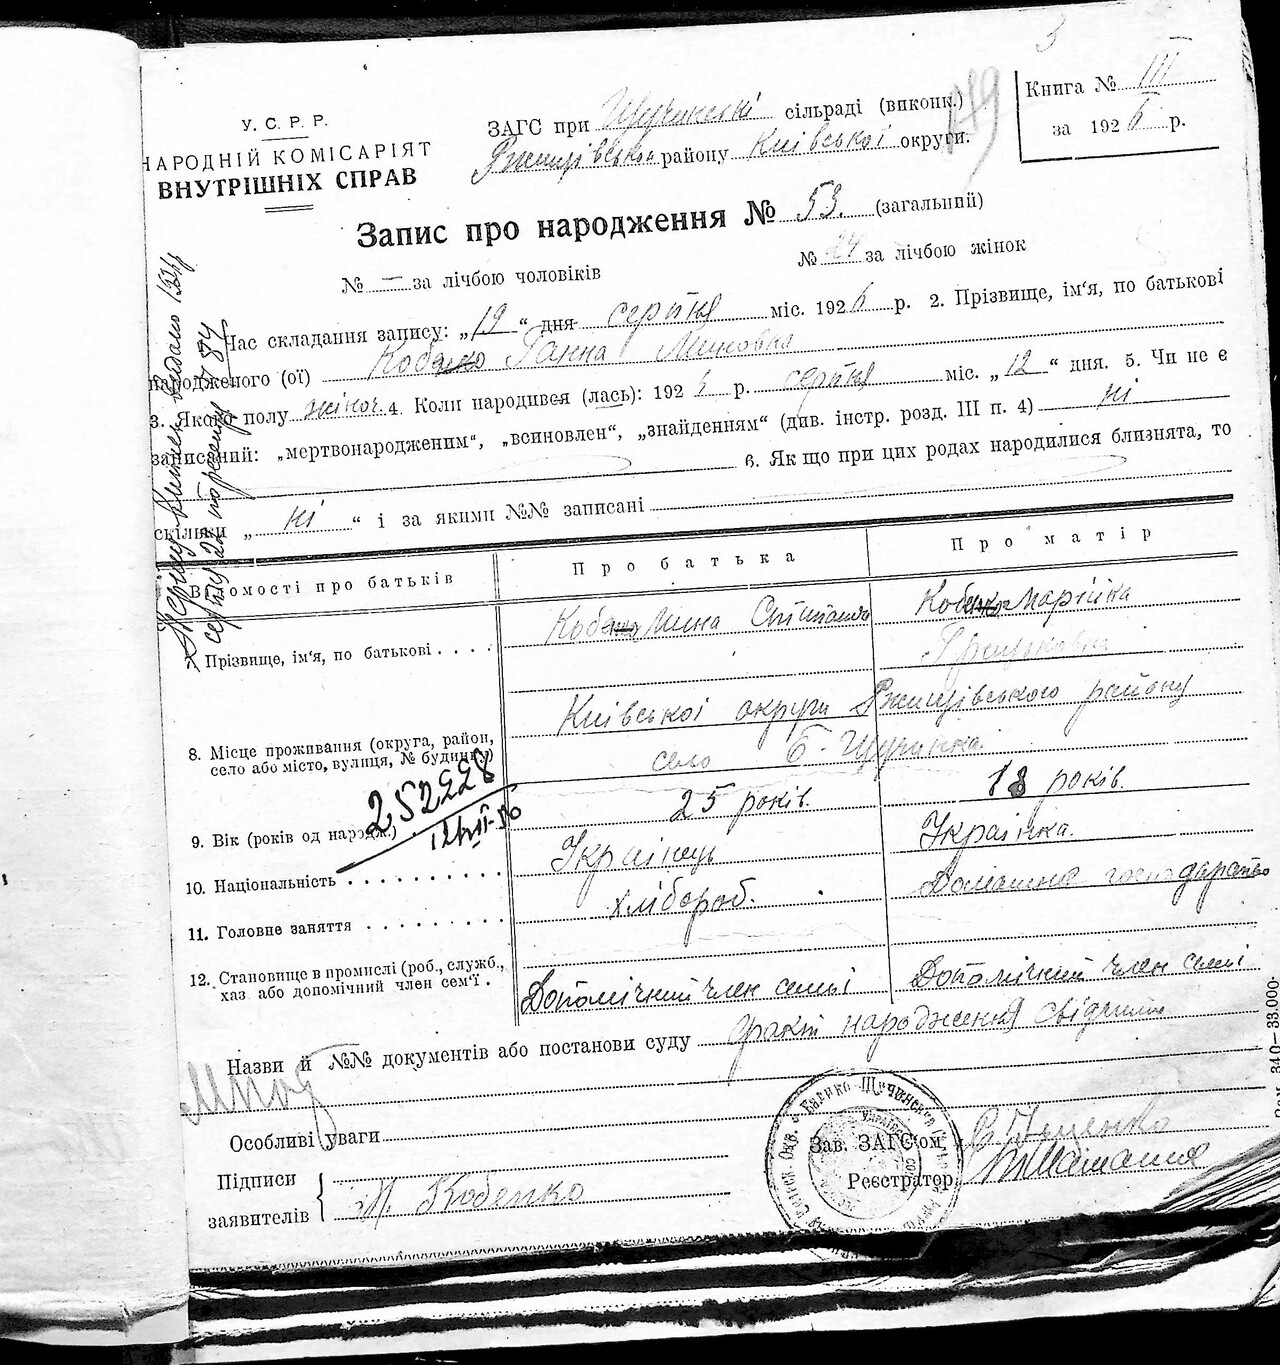 Книга № III
за 1926 р.
У. С. Р. Р.
НАРОДНІЙ КОМІСАРІЯТ
ВНУТРІШНІХ СПРАВ
ЗАГС при Щучинській сільраді (виконк.)
Ржищівського району Київської округи.
149
Запис про народження № 53. (загальний)
№ — за лічбою чоловіків № 24 за лічбою жінок
Час складання запису: „19“ дня серпня міс. 1926 р. 2. Прізвище, ім‘я, по батькові
народженого (ої) Кобенко Ганна Миновна
3. Якого полу жіноч. 4. Коли народився (лась): 1926 р. серпня міс. „12“ дня. 5. Чи не є
записаний: „мертвонародженим“, „всиновлен“, „знайденням“ (див. інстр. розд. III п. 4) ні
6. Як що при цих родах народилися близнята, то
скільки „ні“ і за якими №№ записані
Відомості про батьків Про батька Про матір
7. Прізвище, ім‘я, по батькові . . . . Кобенко Мина Кобенко Марійка
Грицьковна
8. Місце проживання (округа, район, село або місто, вулиця, № будинку) Київської округи Ржищівського району
село Б-Щучинка.
252228
9. Вік (років од народж.) 25 років. 18 років.
10. Національність . . . . . . . . . . Українець Українка.
11. Головне заняття . . . . . . . . хлібороб. Домашнє господарство
12. Становище в промислі (роб., служб., хаз або допомічний член сем‘ї . Допомічний член семьї Допомічний член семьї
Назви й №№ документів або постанови суду факт народження
Особливі уваги
Підписи
заявителів М. Кобенко
Зав. ЗАГС‘ом
Реєстратор